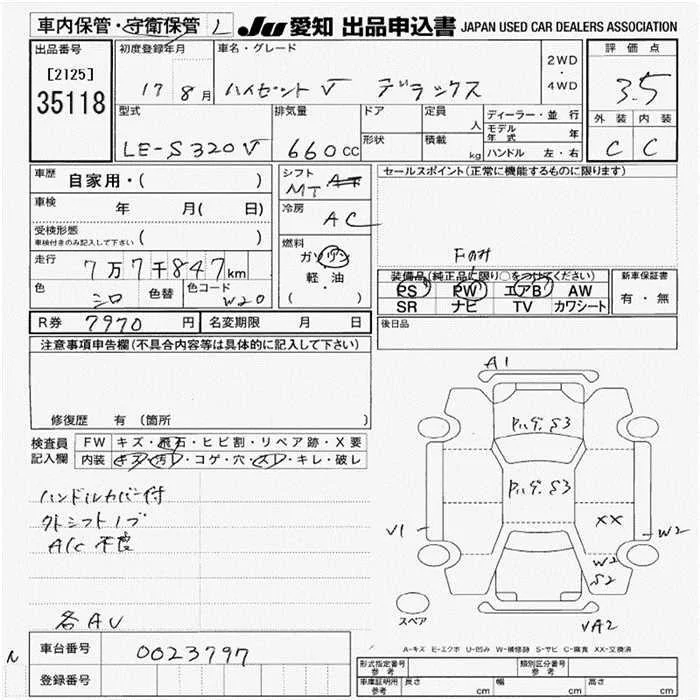 車内保管・守衛保管 L
JU 愛知 出品申込書 JAPAN USED CAR DEALERS ASSOCIATION
出品番号
[2125]
35118
初度登録年月
17 8月
車名・グレード
ハイゼットV デラックス
2WD
・
4WD
評価点
3.5
外装 内装
C C
型式
LE-S320V
排気量
660cc
ドア
形状
定員
人
積載
kg
ディーラー・並行
モデル年式 年
ハンドル 左・右
車歴
自家用・( )
車検
年 月( 日)
受検形態
車検付きのみ記入して下さい ( )
走行
7万7千847km
色
シロ
色替
色コード
W20
シフト
MT AT
冷房
AC
燃料
ガソリン
軽・油
( )
セールスポイント(正常に機能するものに限ります)
Fのみ
装備品(純正品に限り○をつけてください)
PS PW エアB AW
SR ナビ TV カワシート
新車保証書
有・無
後日品
R券 7970円
名変期限 月 日
注意事項申告欄(不具合内容等は具体的に記入して下さい)
修復歴 有 (箇所 )
検査員記入欄
FW キズ・飛石・ヒビ割・リペア跡・X要
内装 キズ・汚レ・コゲ・穴・スレ・キレ・破レ
ハンドルカバー付
外シフトノブ
A/C 不良
各AU
A1
S3
S3
V1
XX
W2
W2
S2
VA2
スペア
A-キズ E-エクボ U-凹み W-補修跡 S-サビ C-腐食 XX-交換済
車台番号
0023797
登録番号
型式指定番号 参考
類別区分番号 参考
車庫証明用 参考
長さ cm
幅 cm
高さ cm